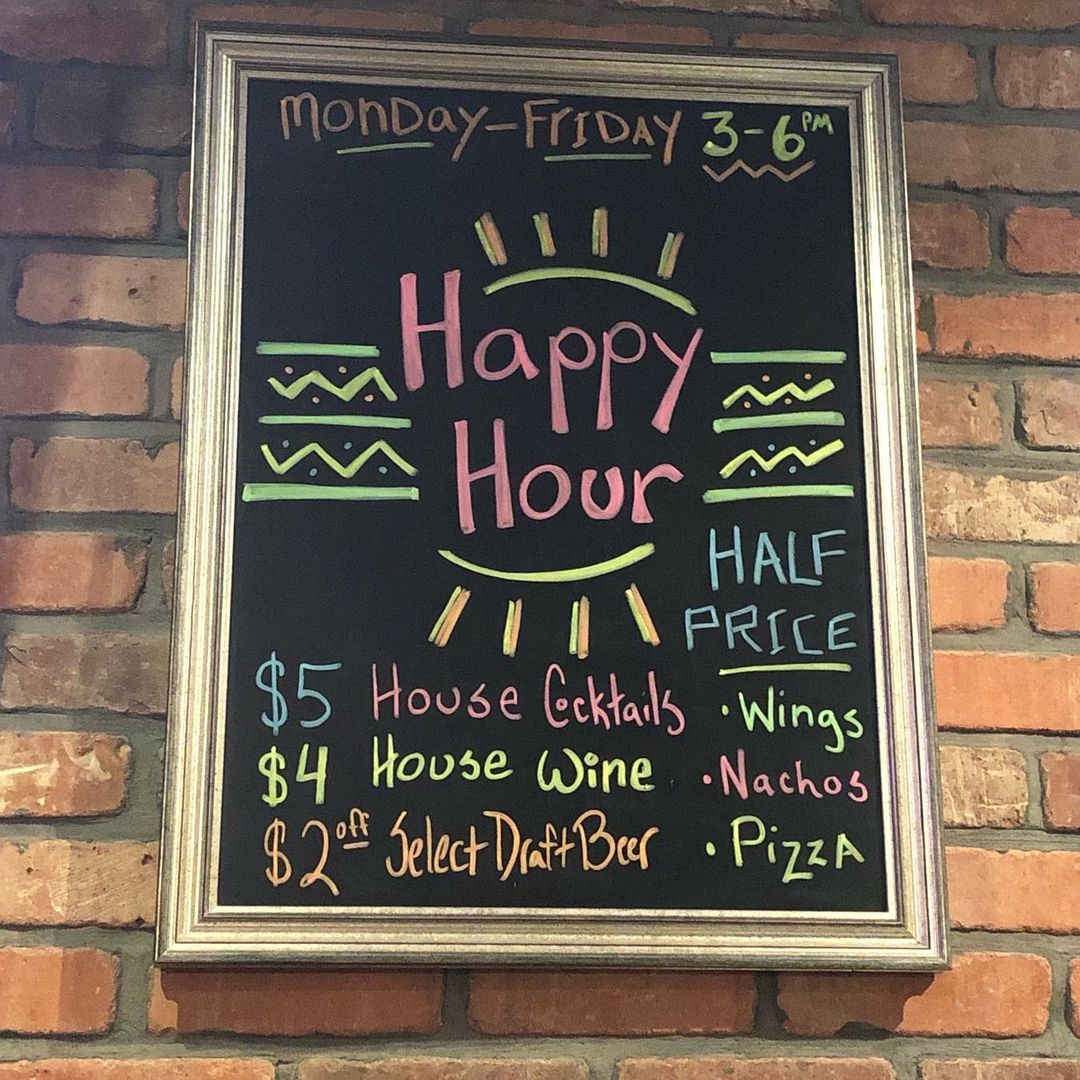 MonDay-FrIDAY 3-6PM
Happy
Hour
HALF
PRICE
$5 House Cocktails
$4 House Wine
$2 off Select Draft Beer
· Wings
· Nachos
· PizzA